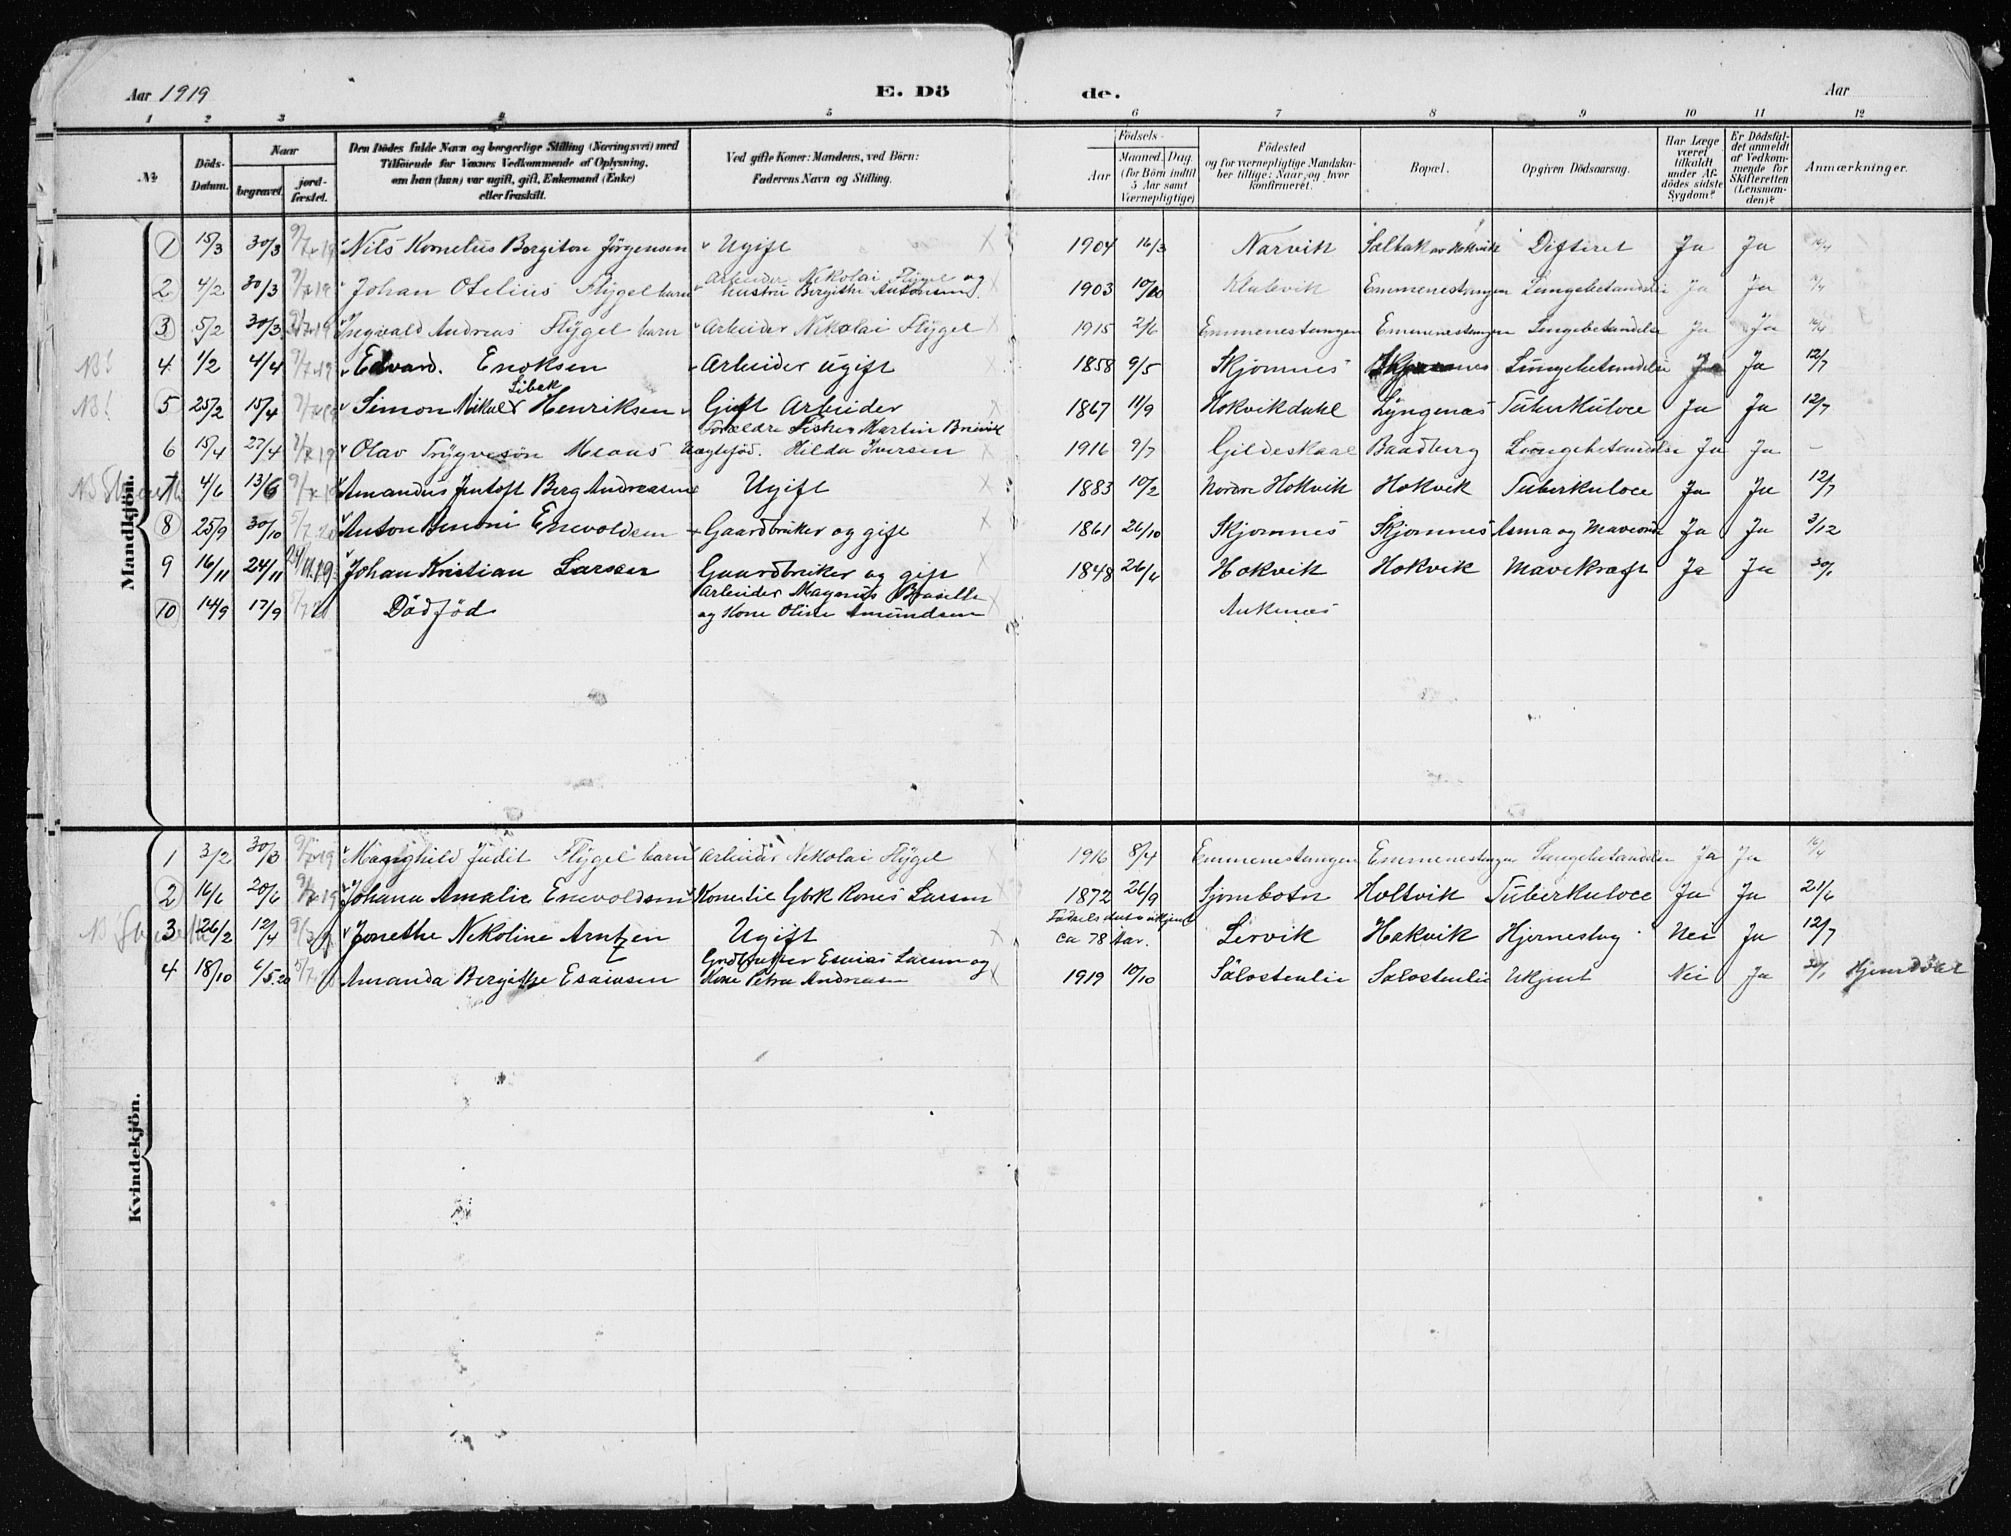 Aar 1919 E. Dö de. Aar
1 2 3 4 5 6 7 8 9 10 11 12
№ Döds-Datum. Naar begravet. jord-fæstet. Den Dödes fulde Navn og borgerlige Stilling (Næringsvei) med Tilföiende for Voxnes Vedkommende af Oplysning, om han (hun) var ugift, gift, Enkemand (Enke) eller fraskilt. Ved gifte Koner: Mandens, ved Börn: Faderens Navn og Stilling. Födsels- Aar Maaned. Dag. (for Börn indtil 5 Aar samt Værnepligtige) Födested og for værnepligtige Mandskaber tillige: Naar og hvor konfirmeret. Bopæl. Opgiven Dödsaarsag. Har Læge været tilkaldt under Afdödes sidste Sygdom? Er Dödsfaldet anmeldt af Vedkommende for Skifteretten (Lensmanden)? Anmærkninger.
Mandkjön.
1 15/3 30/3 9/7-19 Nils Kornelius Bergiton Jörgensen Ugift 1904 16/3 Narvik Saltbak av Hokvik Difteret Ja Ja
2 4/2 30/3 9/7-19 Johan Otelius Flÿgel barn Arbeider Nikolai Flÿgel og hustru Bergithe Antonsen 1903 10/10 Klubvik Emmenestangen Lungebetendelse Ja Ja
3 5/2 30/3 9/7-19 Ingvald Andreas Flÿgel barn Arbeider Nikolai Flÿgel 1915 2/6 Emmenestangen Emmenestangen Lungebetendelse Ja Ja
NB! 4 1/2 4/4 9/7-19 Edvard. Enoksen Arbeider ugift 1858 9/5 Skjomnes Skjomnes Lungebetendelse Ja Ja 12/7
NB! 5 25/2 15/4 Simon Mikal Libak Henriksen Gift Arbeider 1867 11/9 Hokvikdahl Lyngenæs Tuberkuloce Ja Ja 12/7
6 15/4 27/4 Olav Trÿgvesön Meaas Uægtefød. Forældre Fisker Martin Breivik Hilda Iversen 1916 9/7 Gildeskaal Baadberg Lungebetendelse Ja Ja –
7 4/6 13/6 Amandus Jentoft Berg Andreasen Ugift 1883 10/2 Nordre Hokvik Hokvik Tuberkuloce Ja Ja 12/7
8 25/9 30/10 Anton Benoni Enevoldsen Gaardbruker og gift 1861 26/10 Skjomnes Skjomnes Asma og Mavesvik Ja Ja 3/12
9 16/11 24/11 24/11.19. Johan Kristian Larsen Gaardbruker og gift 1848 26/4 Hokvik Hokvik Mavekræft Ja Ja 30/1
10 14/9 17/9 Dödfød Arbeider Magnus og Kone Oline Amundsen Ankenæs
Kvindekjön.
1 3/2 30/3 9/7-19 Magnhild Judit Flÿgel barn Arbeider Nikolai Flÿgel 1916 8/4 Emmenestangen Emmenestangen Lungebetendelse Ja Ja
2 16/6 20/6 9/7-19 Johana Amalie Enevoldsen Kone til Gbk Kones Larsen 1872 26/9 Sjombotn Holtvik Tuberkuloce Ja Ja 21/6
3 26/2 12/4 Jonethe Nikoline Arntzen Ugift Fødselsdato ukjent ca 78 Aar. Leirvik Hakvik Hjerneslag Nei Ja 12/7
4 18/10 6/5.20 Amanda Bergithe Esaiasen Esaias Larsen og Kone Petra Andreasen 1919 10/10 Salostenlie Salostenlie Ukjent Nei Ja 30/1 Hjemdöbt